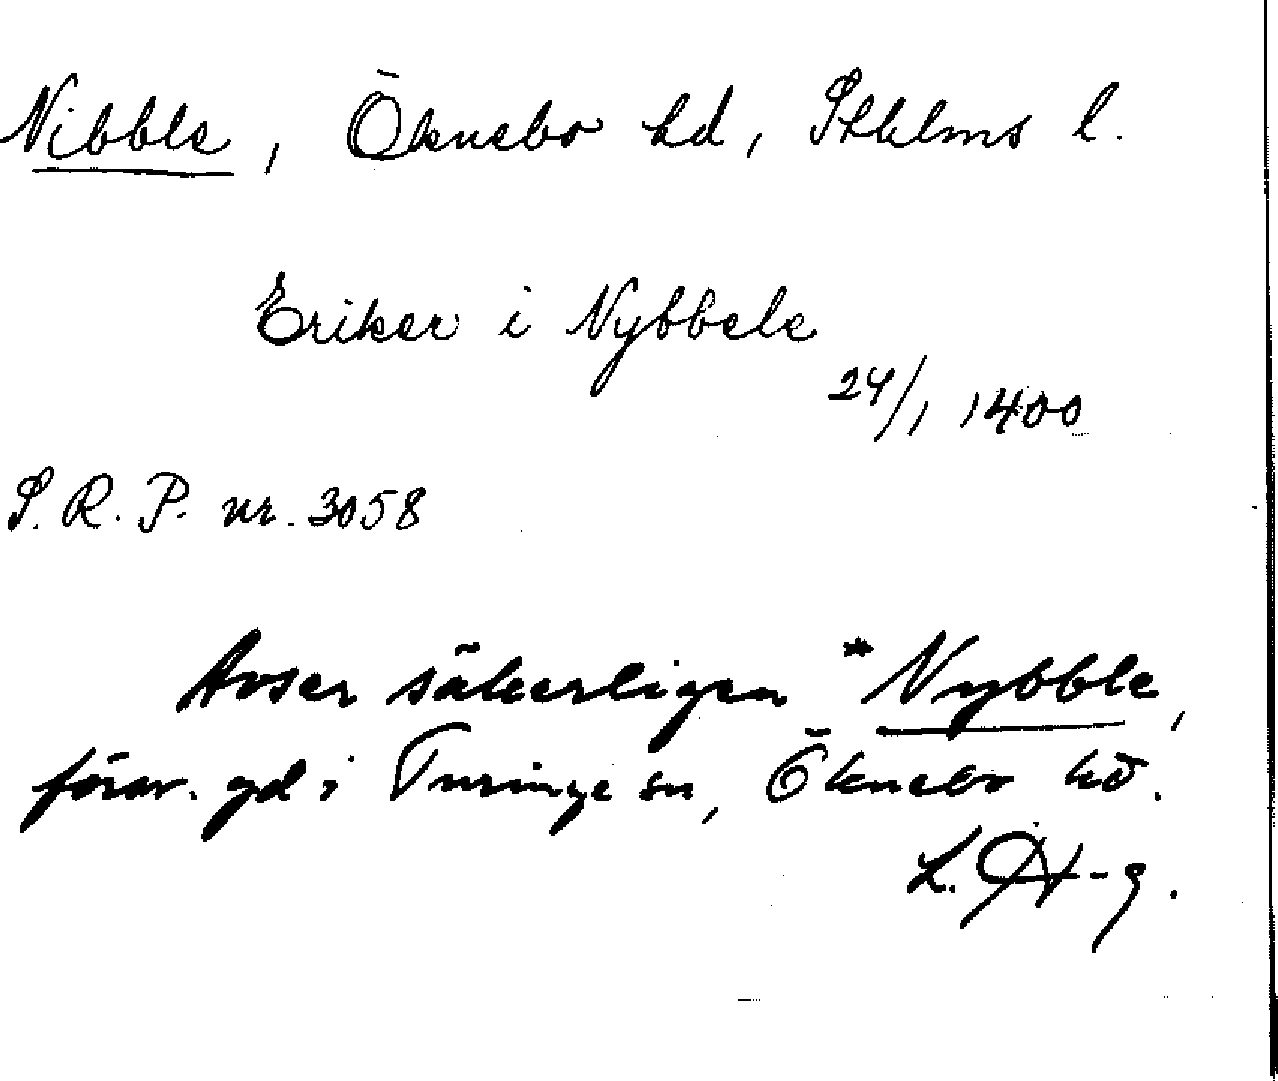 Nibble, Öknebo hd, Sthlms l.
Eriker i Nybbele
24/1 1400
S. R. P. nr. 3058
Avser säkerligen *Nybble,
försv. gd i Turinge sn, Öknebo hd.
L. H-g.